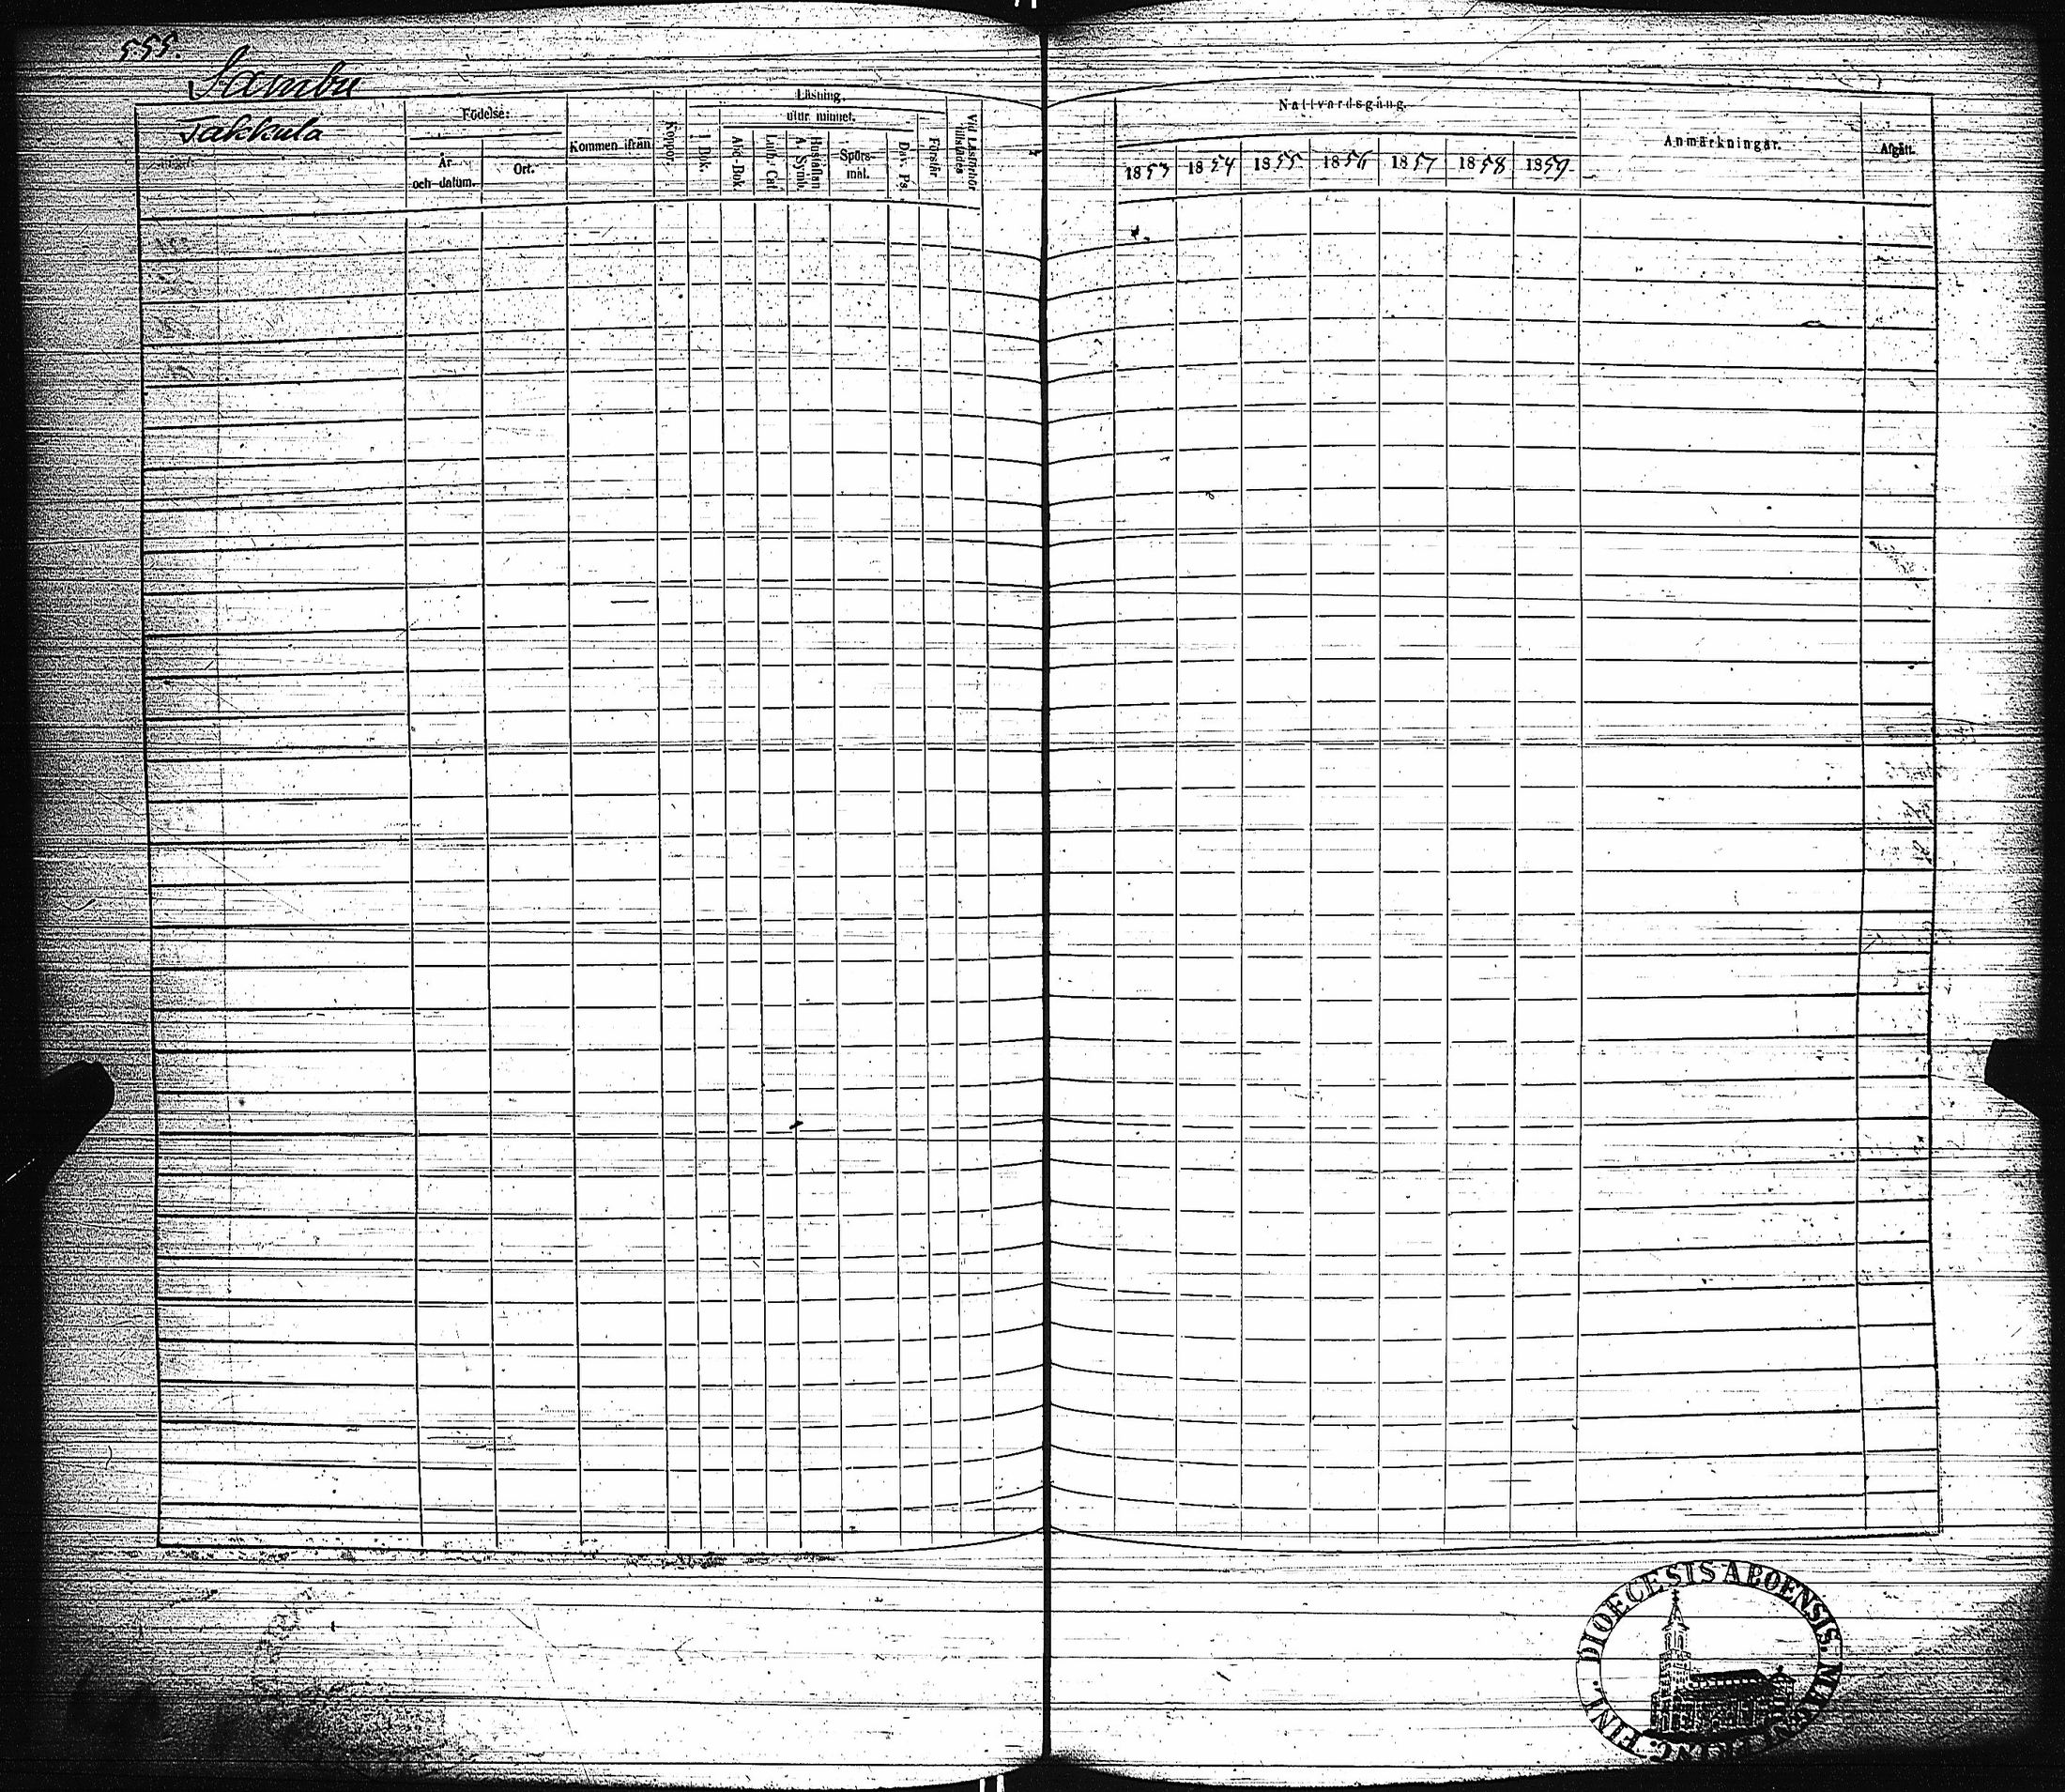 555.
Sambu
Jakkula
Födelse:
År
och datum.
Ort.
Kommen ifrån
Koppor.
Läsning.
utur minnet.
I Bok.
Abc-Bok.
Luth: Cat.
Hustaflan
A. Symb.
Spörs-
mål.
Dav. Ps.
Förstår.
Vid Läsförhör
tillstädes
Nattvardsgång.
1853
1854
1855
1856
1857
1858
1859
Anmärkningar.
Afgått.
DIOECESIS ABOENSIS. MAGNI PRINC. FINL.